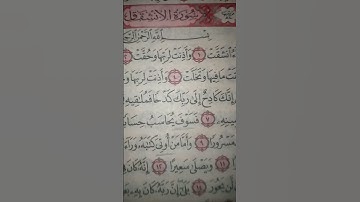 سورة الانشقاق
بسم الله الرحمن الرحيم
انشقت ١ وأذنت لربها وحقت ٢
ما فيها وتخلت ٤ وأذنت لربها
إنك كادح إلى ربك كدحا فملقيه
٧ فسوف يحاسب حسابا
مسرورا ٩ وأما من أوتي كتبه وراء
١١ ويصلى سعيرا ١٢ إنه كان
لن يحور ١٤ بلى إن ربه كان به